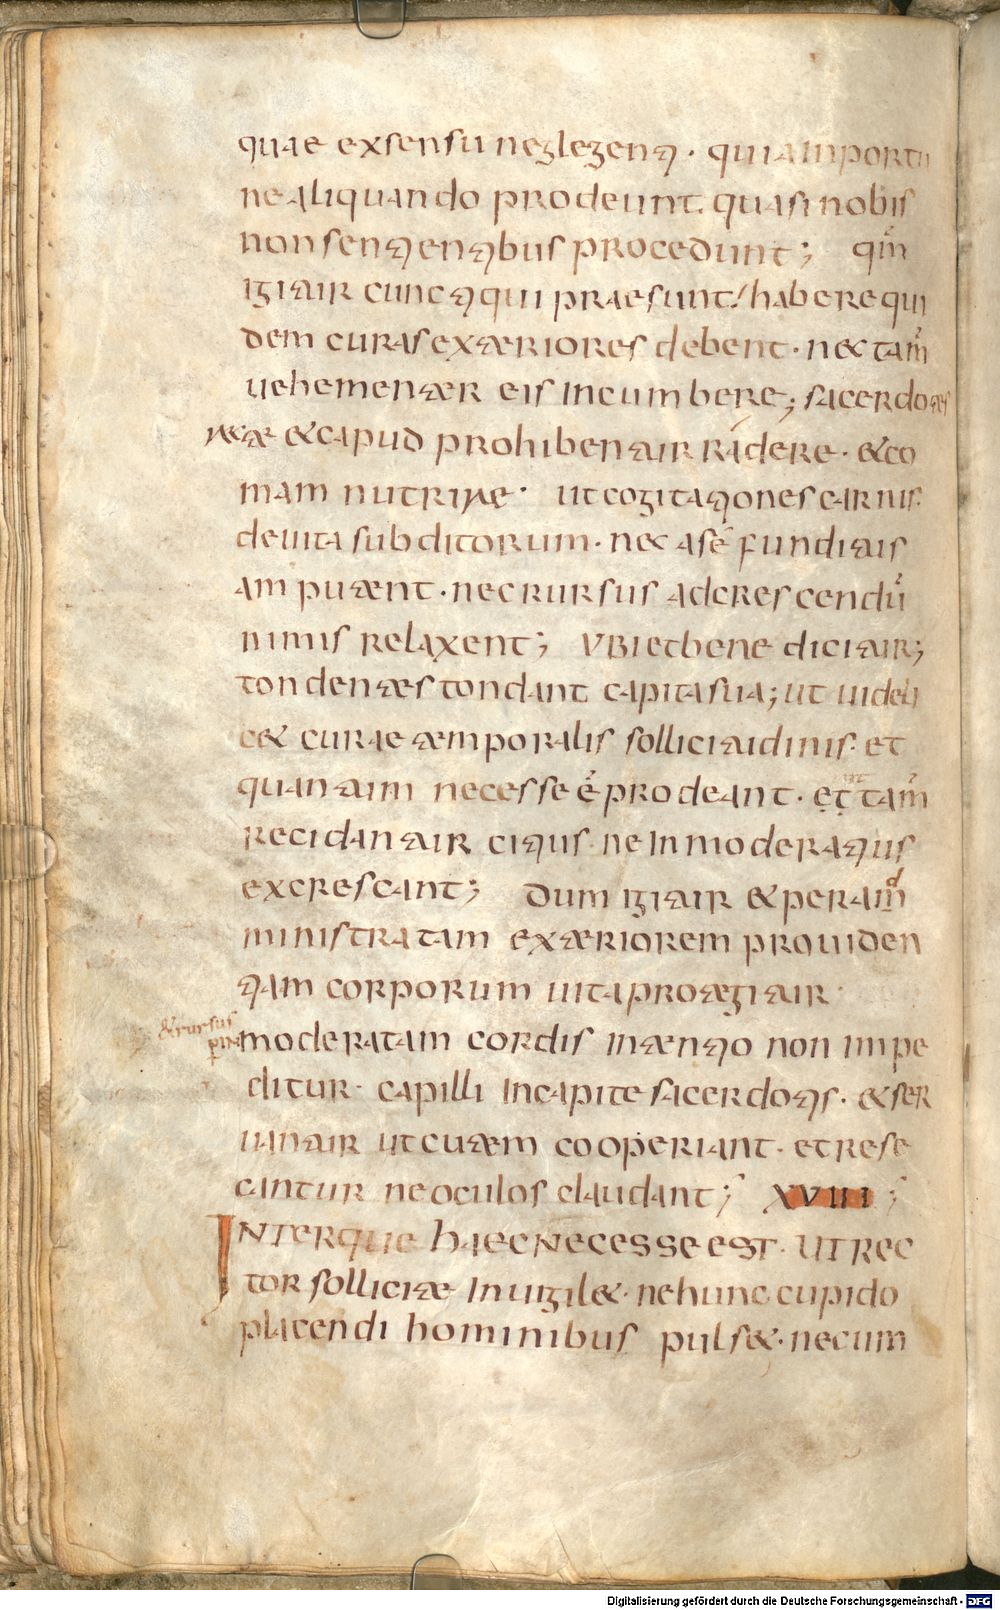 quae exsensu neglegenti· quiainportu
ne aliquando prodeunt. quasi nobis
nonsentientibus procedunt; qm̄
igitur cunctiqui praesunt! habere qui
dem curas exteriores debent· nec tam̄
uehementer eis incumbere; sacerdotes
recte & capud prohibentur rádere· & co
mam nutrire· ut cogitationes carnis
deuita subditorum· nec ase̅ funditus
amputent· nec rursus adcrescendū
nimis relaxent; ubi et bene dicitur;
tondentes tondant capita sua; ut uideli
c& curae temporalis sollicitudinis· et
quantum necesse ē prodeant· et tam̄
recidantur citius· ne inmoderatius
excrescant; Dum igitur & per am̄d
ministratam exteriorem prouiden
tiam corporum uita protegitur·
& rursus
per in
moderatam cordis intentio non inpe
ditur· capilli incapite sacerdotis· & ser
uantur ut cutem cooperiant· et rese
cantur ne oculos claudant; XVIIII;
INTERque haec necesse est· ut rec
tor sollicite inuigil&· ne hunc cupido
placendi hominibus puls&· ne cum
Digitalisierung gefördert durch die Deutsche Forschungsgemeinschaft - DFG